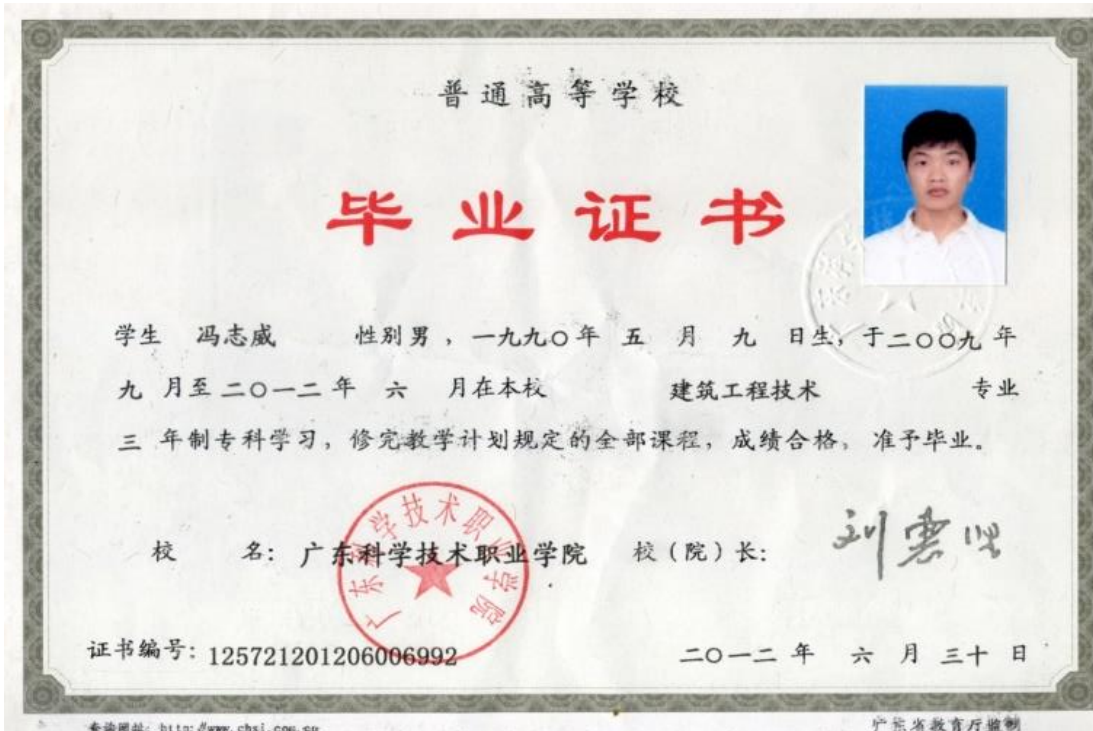 普通高等学校
毕业证书
学生 冯志威 性别男，一九九〇年 五 月 九 日生，于二〇〇九年
九 月至二〇一二年 六 月在本校 建筑工程技术 专业
三 年制专科学习，修完教学计划规定的全部课程，成绩合格，准予毕业。
校 名：广东科学技术职业学院 校（院）长：
广东科学技术职业学院
证书编号：125721201206006992 二〇一二 年 六 月 三十 日
查询网址：http://www.chsi.com.cn 广东省教育厅监制